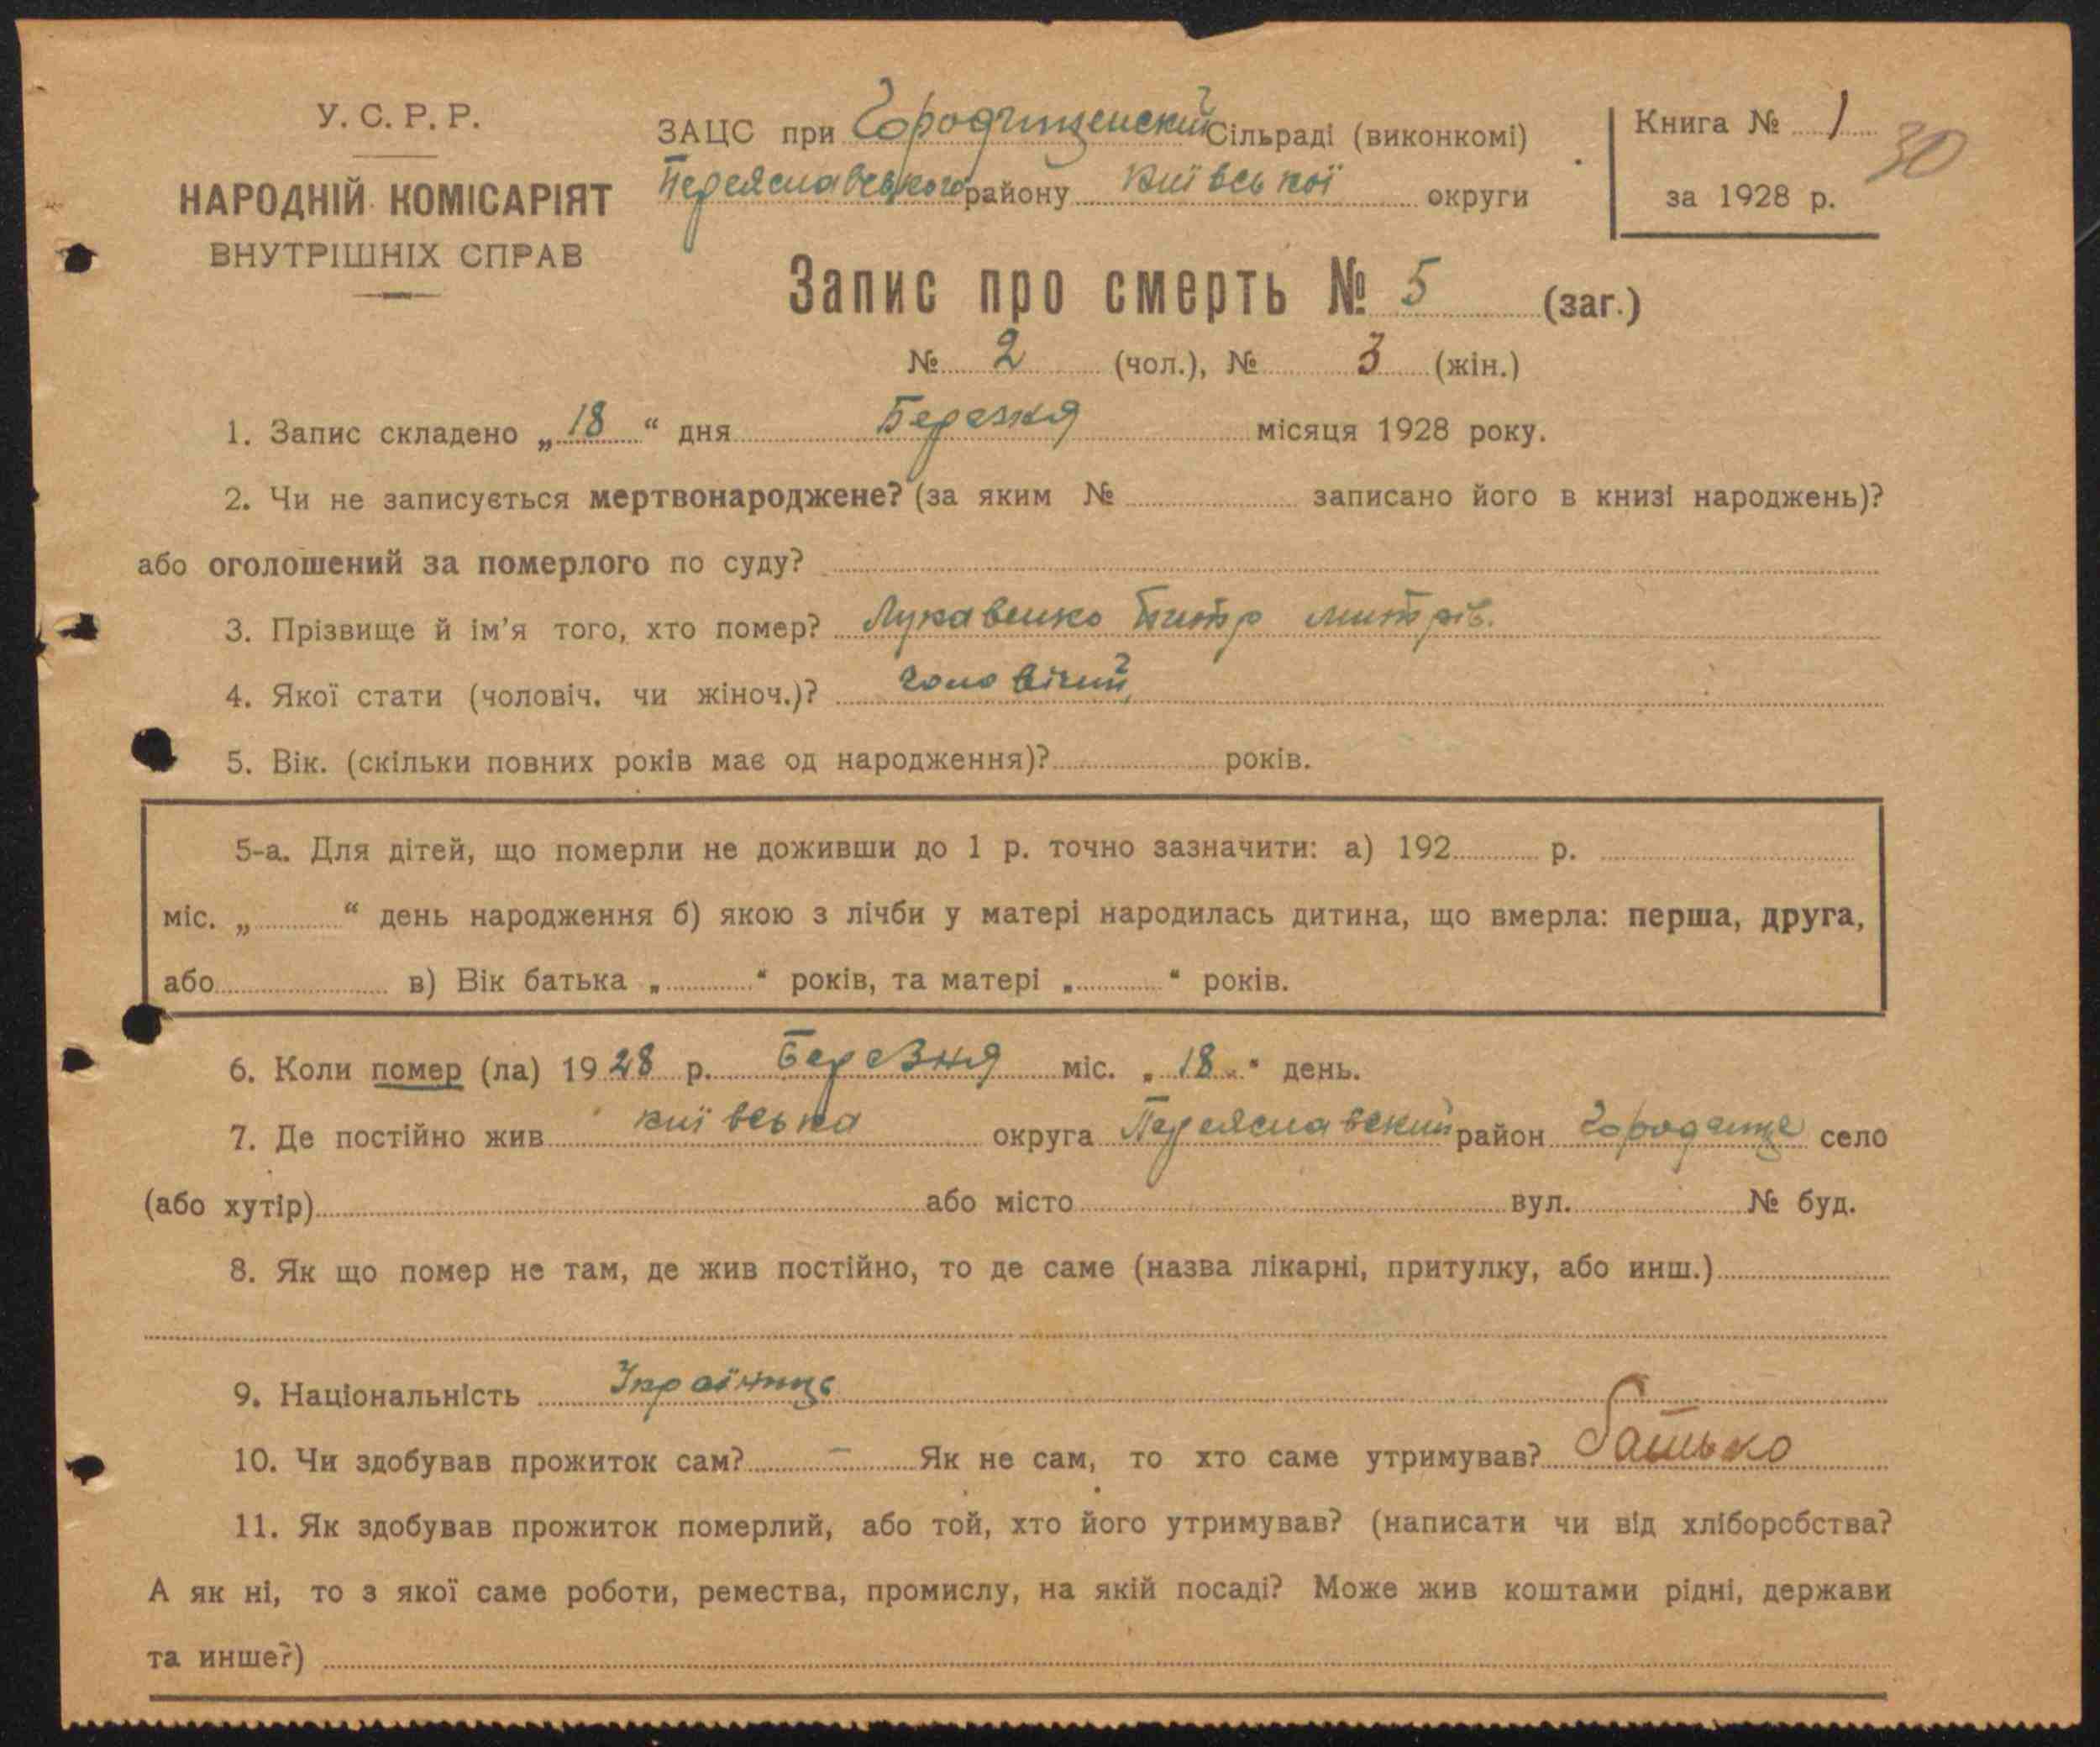 У. С. Р. Р.
НАРОДНІЙ КОМІСАРІЯТ
ВНУТРІШНІХ СПРАВ
ЗАЦС при Городищенский Сільраді (виконкомі)
Переяславського району Київської округи
Книга № 1
30
за 1928 р.
Запис про смерть № 5 (заг.)
№ 2 (чол.), № 3 (жін.)
1. Запис складено „ 18 “ дня Березня місяця 1928 року.
2. Чи не записується мертвонароджене? (за яким № записано його в книзі народжень)?
або оголошений за померлого по суду?
3. Прізвище й ім'я того, хто помер? Лукавенко митрів.
4. Якої стати (чоловіч. чи жіноч.)? чоловічий
5. Вік. (скільки повних років має од народження)? років.
5-а. Для дітей, що померли не доживши до 1 р. точно зазначити: а) 192 р.
міс. „ “ день народження б) якою з лічби у матері народилась дитина, що вмерла: перша, друга,
або в) Вік батька „ “ років, та матері „ “ років.
6. Коли помер (ла) 1928 р. Березня міс. „ 18 “ день.
7. Де постійно жив київська округа Переяславский район Городище село
(або хутір) або місто вул. № буд.
8. Як що помер не там, де жив постійно, то де саме (назва лікарні, притулку, або инш.)
9. Національність Українець
10. Чи здобував прожиток сам? — Як не сам, то хто саме утримував? батько
11. Як здобував прожиток померлий, або той, хто його утримував? (написати чи від хліборобства?
А як ні, то з якої саме роботи, ремества, промислу, на якій посаді? Може жив коштами рідні, держави
та инше?)